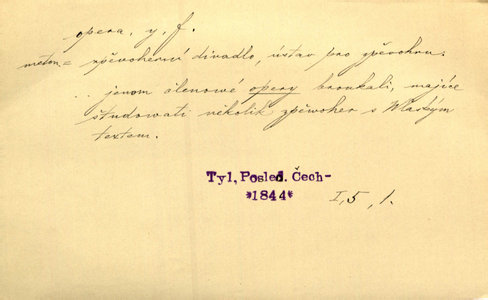 opera, y, f.
meton. = zpěvoherní divadlo, ústav pro zpěvohru:
.. jenom členowé opery broukali, majíce
študowati několik zpěwoher s Wlaským
textem.
Tyl, Posled. Čech-
*1844*
I, 5, 1.